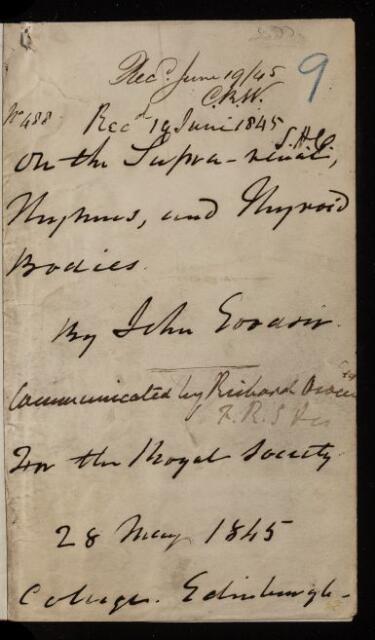 Recd. June 19/45
C.R.W.
9
No 488
Recd 19 June 1845
S.H.C.
On the Supra-renal,
Thymus, and Thyroid
Bodies.
By John Goodsir.
Communicated by Richard Owen
F.R.S
For the Royal Society
28 May 1845
College. Edinburgh-